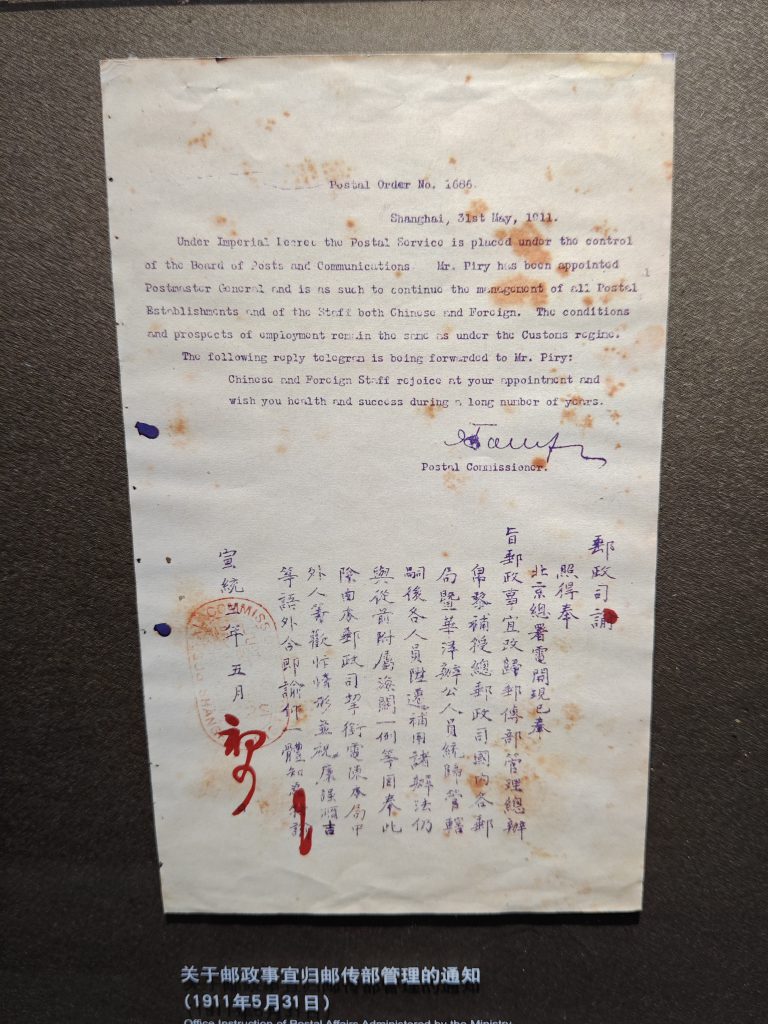 Postal Order No. 1686.
Shanghai, 31st May, 1911.
Under Imperial Decree the Postal Service is placed under the control
of the Board of Posts and Communications Mr. Piry has been appointed
Postmaster General and is as such to continue the management of all Postal
Establishments and of the Staff both Chinese and Foreign. The conditions
and prospects of employment remain the same as under the Customs regime.
The following reply telegram is being forwarded to Mr. Piry:
Chinese and Foreign Staff rejoice at your appointment and
wish you health and success during a long number of years.
Postal Commissioner.
郵政司諭
照得奉
北京總署電開現已奉
旨郵政事宜改歸郵傳部管理總辦
帛黎補授總郵政司國內各郵
局暨華洋辦公人員統歸管轄
嗣後各人員陞遷補用諸辦法仍
與從前附屬海關一例等因奉此
除由本郵政司挈銜電陳本局中
外人等歡忭情形並祝康強順吉
等語外合即諭仰一體知悉
宣統三年五月初
COMMISS
SHANG
关于邮政事宜归邮传部管理的通知
（1911年5月31日）
Office Instruction of Postal Affairs Administered by the Ministry